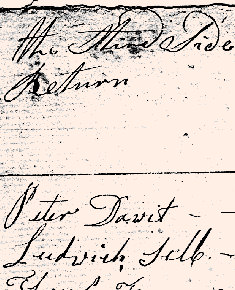 the Third Side
Return
Peter Davit - -
Ludwich Selb -